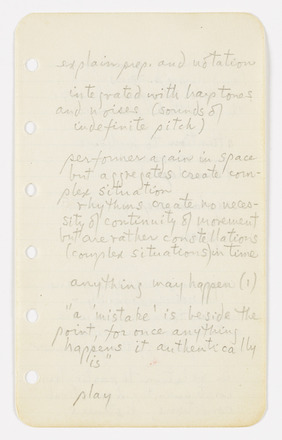 explain prep. and notation
integrated with harp tones
and noises (sounds of
indefinite pitch)
performer again in space
but aggregates create com-
plex situation
rhythms create no neces-
sity of continuity of movement
but are rather constellations
(complex situations) in time
anything may happen (1)
"a 'mistake' is beside the
point, for once anything
happens it authentically
is"
play